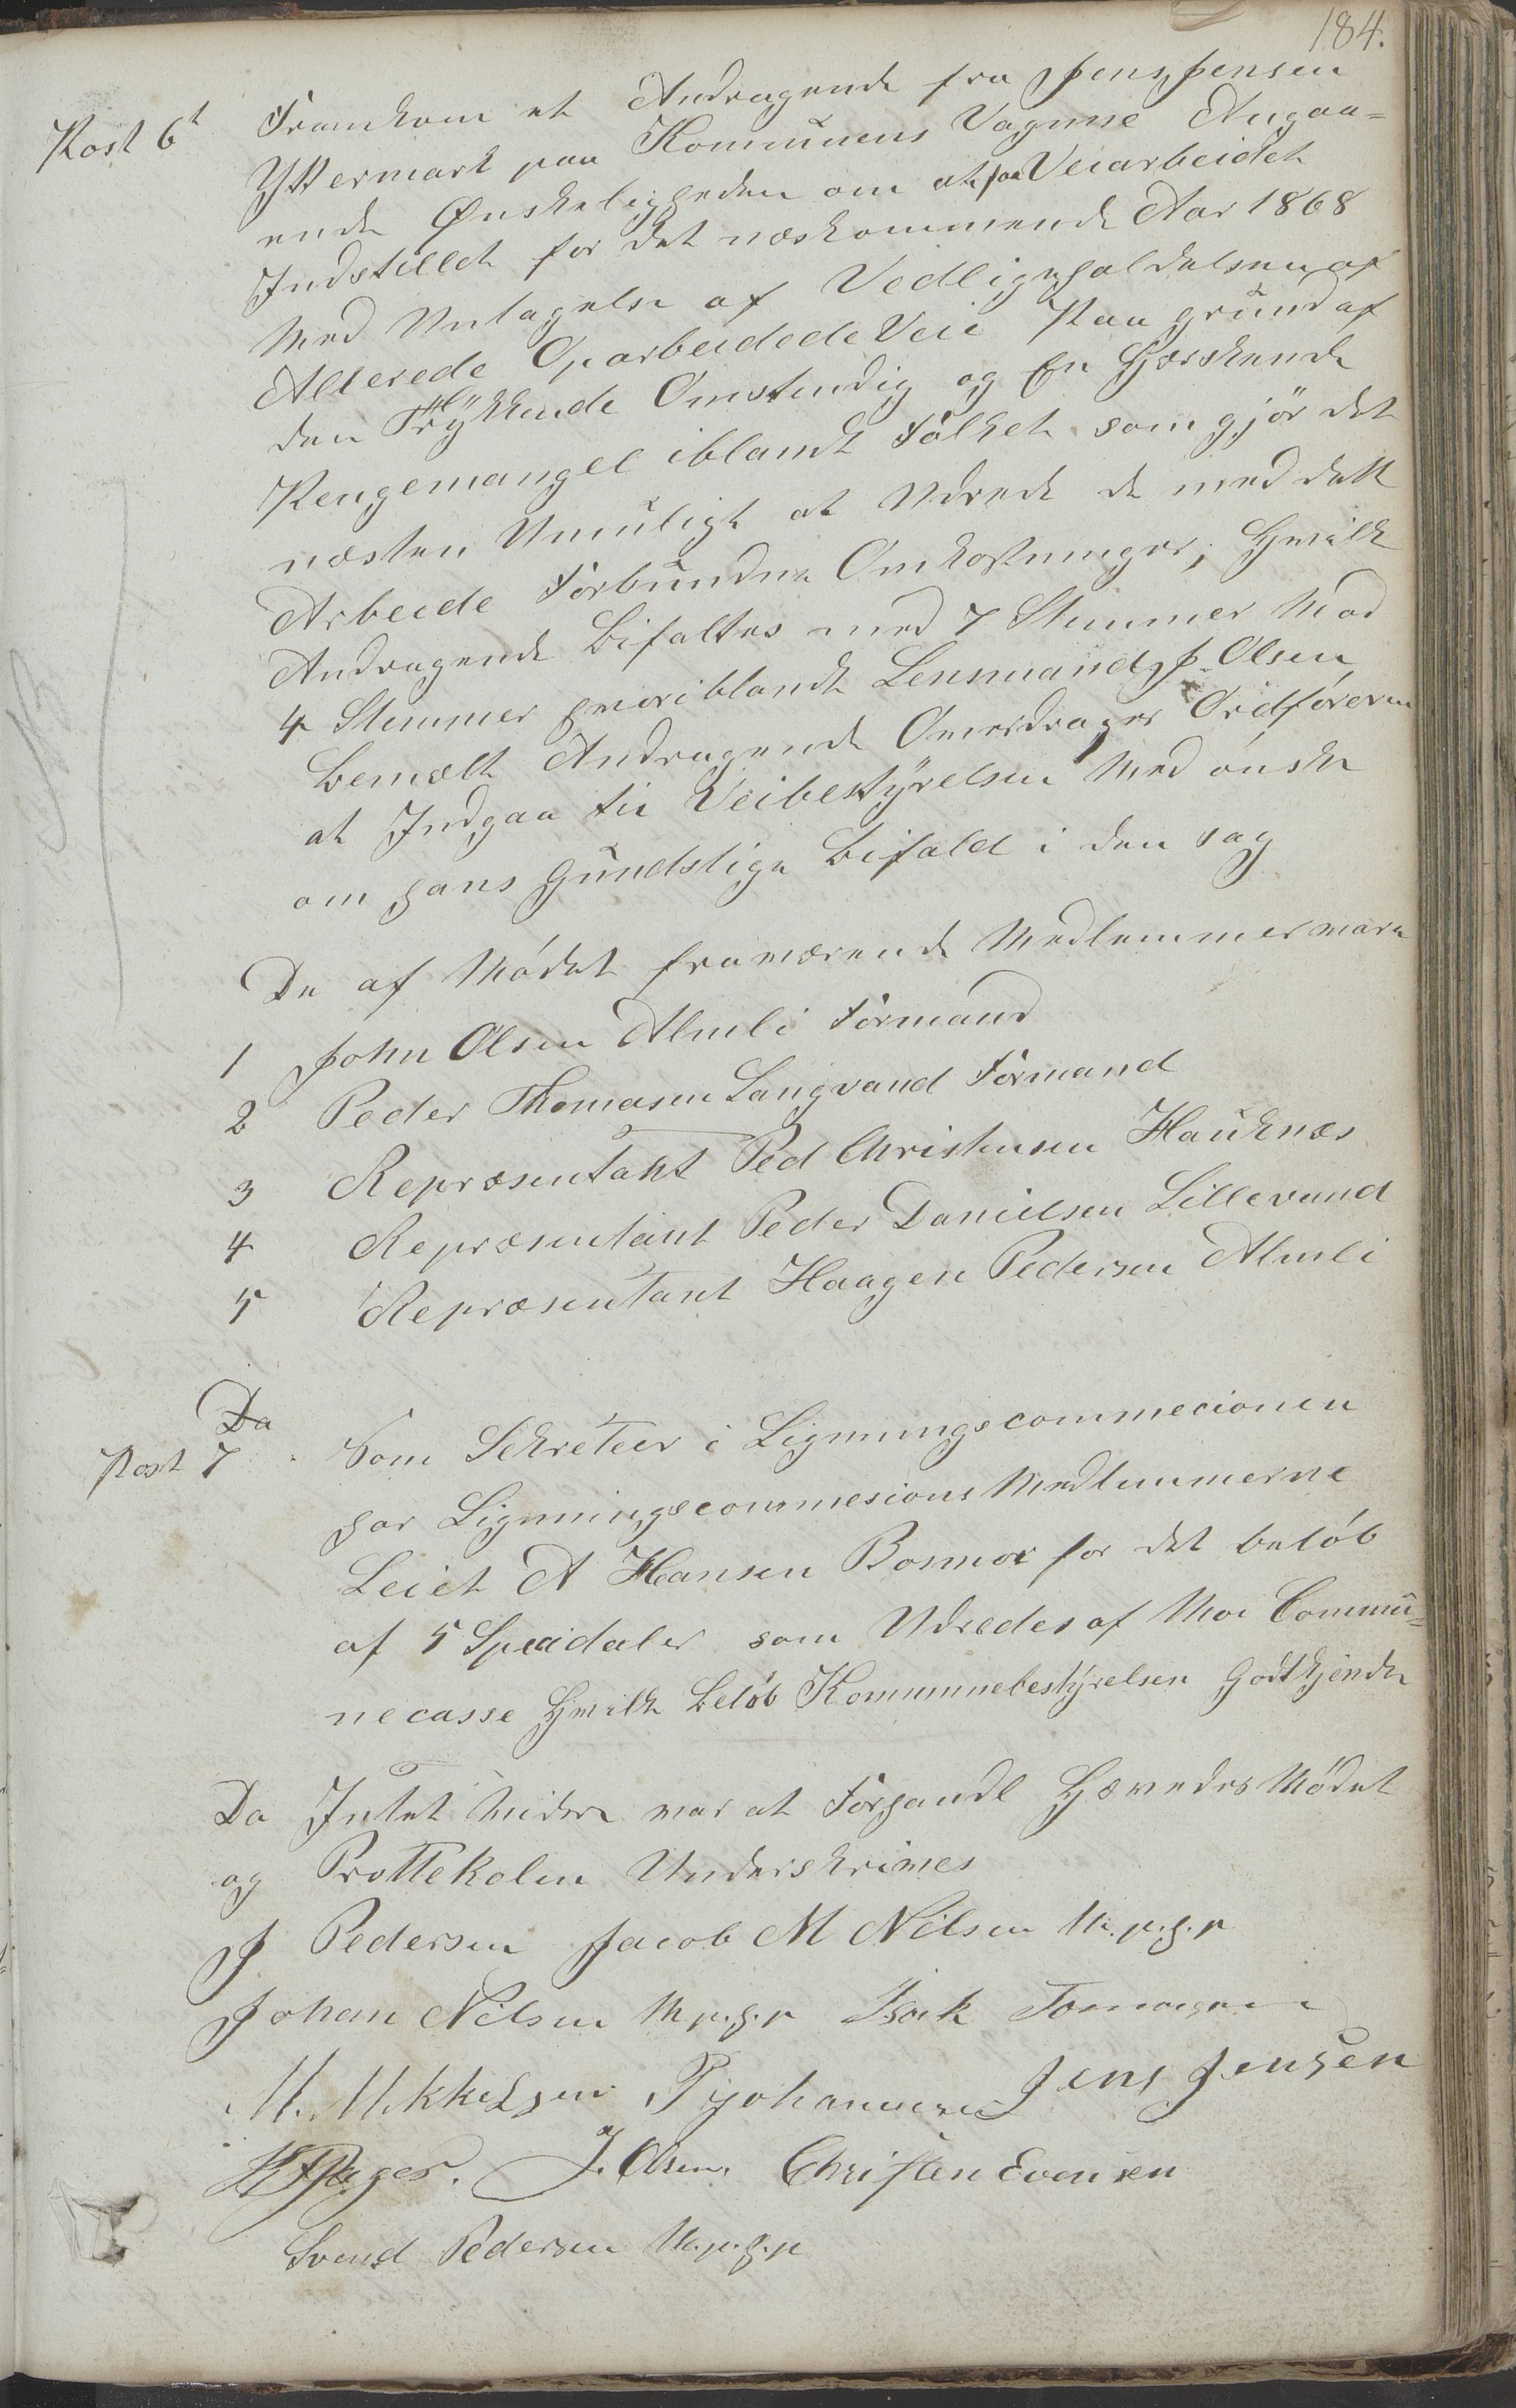 184.
Post 6t Fremkom et Andragende fra Jens Jensen
Yttermark paa Kommunens Vægnne Angaa=
ende Ønskeligheden om at faa Veiarbeidet
Indstillet for det næskommende Aar 1868
Med Untagelse af Vedligeholdelsen af
Allerede Oparbeidede Veie Paa grund af
den Trykkende Omstendig og En Herskende
Pengemangel iblandt Folket som gjør det
næsten Umuligt at Udrede de med dett
Arbeide Forbundne Omkostninger; Hvilke
Andragende Bifaltes med 7 Stemmer Mod
4 Stemmer hvoriblandt Lensmand J. Olsen
Bemælte Andragende Overdrager Ordføreren
at Indgaa til Veibestyrelsen Med ønske
om hans gundstige Bifald i den sag
De af Mødet fraværende Medlemmer vare
1 John Olsen Almli Formand
2 Peder Thomasen Langvand Formand
3 Repræsentant Ped Christensen Hauknæs
4 Repræsentant Peder Danielsen Lillevand
5 Repræsentant Haagen Pedersen Almli
Da
Post 7 Som Sekreteer i Ligningscommecionen
har Ligningscommesions Medlemmerne
Leiet A Hansen Bosmor for det beløb
af 5 Speidaler som Udredes af Moe Commu=
necasse Hvilke Beløb Kommunebestyrelsen Godtkjender
Da Intet Videre var at Forhandl Hævedes Mødet
og Prottekolen Underskrives
J Pedersen Jacob M Nilsen M.p.h.p
Johan Nilsen M p.h.p Isak Tomasen
M. Mikkelsen P Johannesen Jens Jensen
J. Olsen. Christen Evensen
Svend Pedersen M.p.h.p